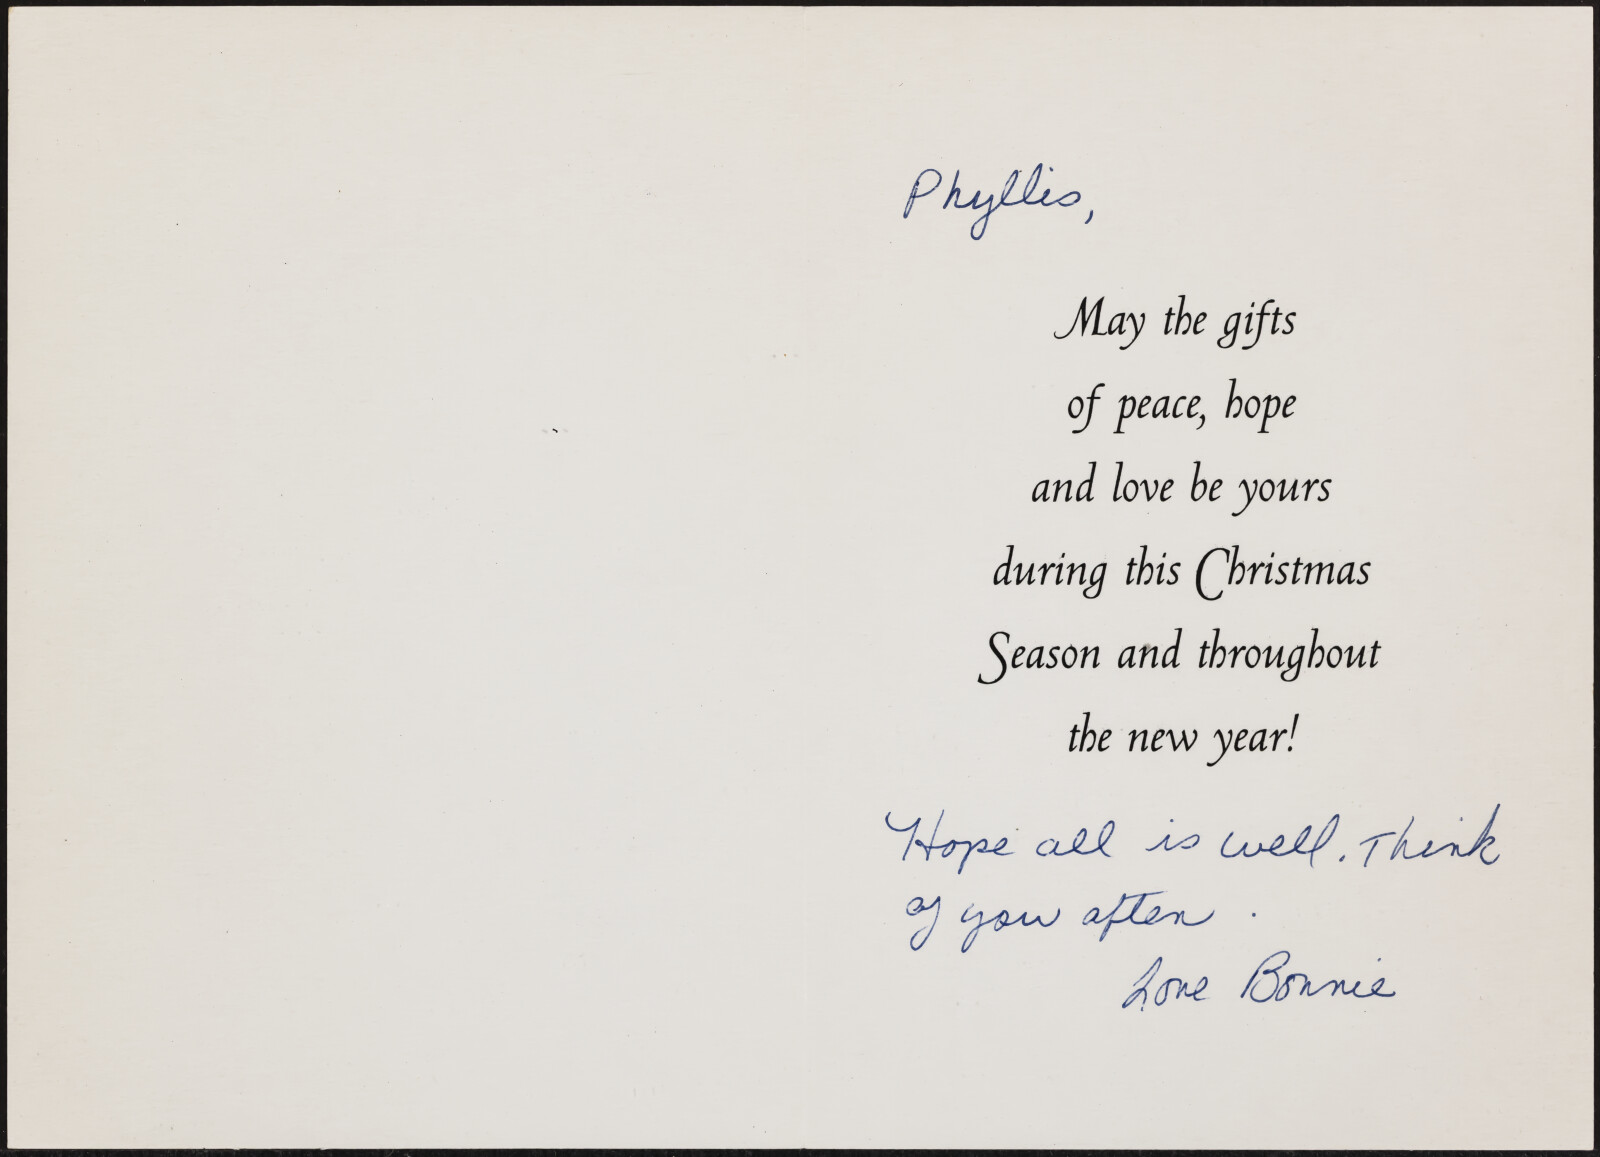 Phyllis,
May the gifts
of peace, hope
and love be yours
during this Christmas
Season and throughout
the new year!
Hope all is well. Think
of you often.
Love Bonnie